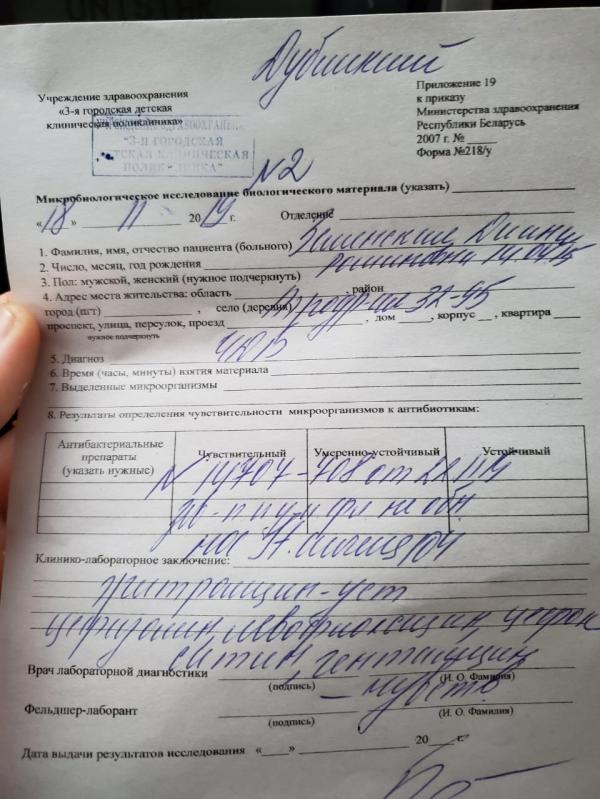 Дубицкий
Учреждение здравоохранения
«3-я городская детская
клиническая поликлиника»
Приложение 19
к приказу
Министерства здравоохранения
Республики Беларусь
2007 г. № ____
Форма №218/у
"3-Я ГОРОДСКАЯ
ДЕТСКАЯ КЛИНИЧЕСКАЯ
ПОЛИКЛИНИКА"
N2
Микробиологическое исследование биологического материала (указать)
«18» 11 2019 г. Отделение
1. Фамилия, имя, отчество пациента (больного)
2. Число, месяц, год рождения
3. Пол: мужской, женский (нужное подчеркнуть)
4. Адрес места жительства: область , район
город (пгт) , село (деревня) 32-95
проспект, улица, персулок, проезд , дом , корпус , квартира
нужное подчеркнуть
5. Диагноз ЧДБ
6. Время (часы, минуты) взятия материала
7. Выделенные микроорганизмы
8. Результаты определения чувствительности микроорганизмов к антибиотикам:
Антибактериальные препараты (указать нужные) Чувствительный Умеренно-устойчивый Устойчивый
N 14707-708 от 22.11.19
не обн
нос St.
Клинико-лабораторное заключение:
эритромицин-уст
левофлоксацин,
гентамицин
Врач лабораторной диагностики
(подпись) (И. О. Фамилия)
- чувств
Фельдшер-лаборант
(подпись) (И. О. Фамилия)
Дата выдачи результатов исследования «____» 20 г.